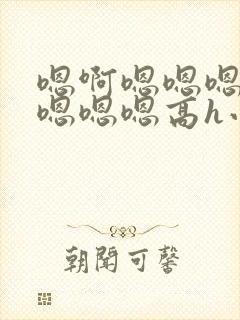 嗯啊嗯嗯嗯
嗯嗯嗯高h
朝聞可馨